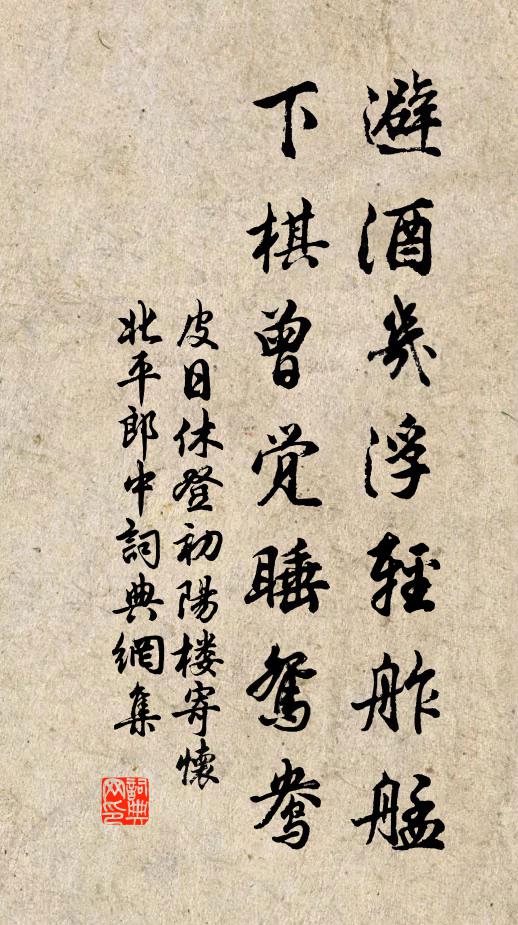 避酒幾浮輕舴艋
下棋曾觉睡鴛鴦
皮日休登初陽楼寄懷
北平郎中詞典網集
詞典
网印